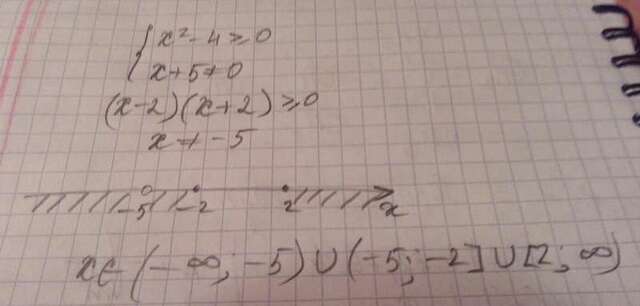 { x² - 4 ≥ 0
x + 5 ≠ 0
(x-2)(x+2) ≥ 0
x ≠ -5
-5 -2 2 x
x ∈ (-∞; -5) ∪ (-5; -2] ∪ [2; ∞)